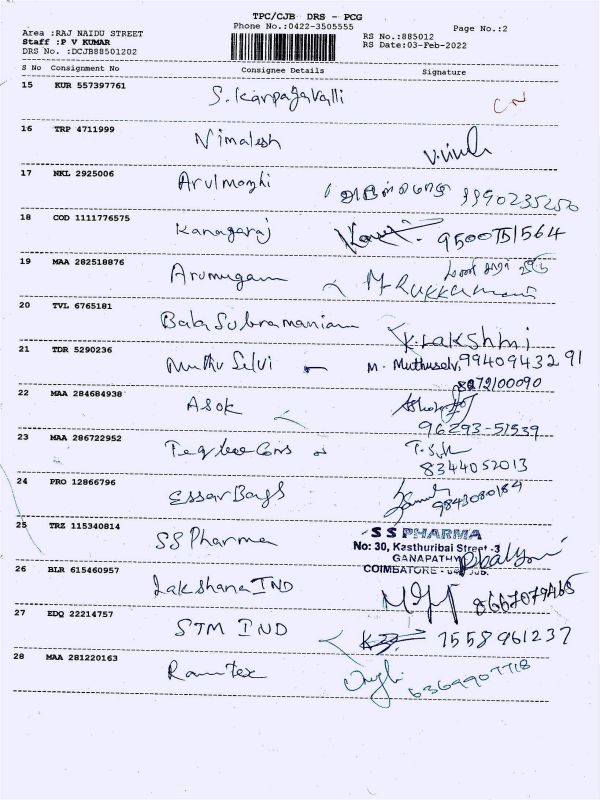 TPC/CJB DRS - PCG
Phone No.:0422-3505555
Page No.:2
Area :RAJ NAIDU STREET
Staff :P V KUMAR
DRS No. :DCJB88501202
RS No.:885012
RS Date:03-Feb-2022
S No Consignment No Consignee Details Signature
15 KUR 557397761 S. Karpagavalli CN
16 TRP 4711999 Nimalesh
17 NKL 2925006 Arulmozhi 9990235250
18 COD 1111776575 Kanagaraj
19 MAA 282518876 Arumugam M. Rukkumani
20 TVL 6765181 Bala Subramaniam K. LAKSHMI
21 TDR 5290236 Muthu Selvi M. Muthuselvi 9940943291
8072100090
22 MAA 284684938 Asok
96293-51539
23 MAA 286722952
8344052013
24 PRO 12866796 Essar Bags 9843080184
25 TRZ 115340814 SS Pharma
S S PHARMA
No: 30, Kasthuribai Street -3
GANAPATHY
COIMBATORE -
26 BLR 615460957 Lakshana IND 8667079465
27 EDQ 22214757 STM IND 7558961237
28 MAA 281220163 Ramtex 6369907718